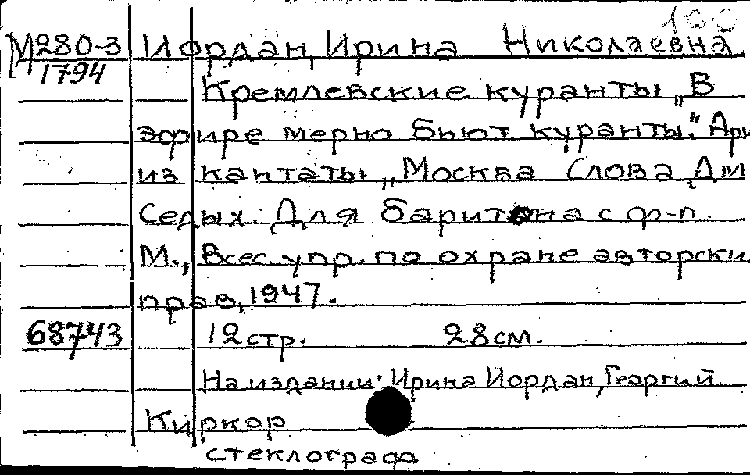 100
М280-3 Иордан, Ирина Николаевна
1794
Кремлевские куранты „В
эфире мерно бьют куранты." Ари
из кантаты „Москва Слова Дм
Седых. Для баритона с ф-п.
М., Всес. упр. по охране авторски
прав, 1947.
68743 12 стр. 28 см.
На издании: Ирина Иордан, Георгий
Киркор
стеклограф